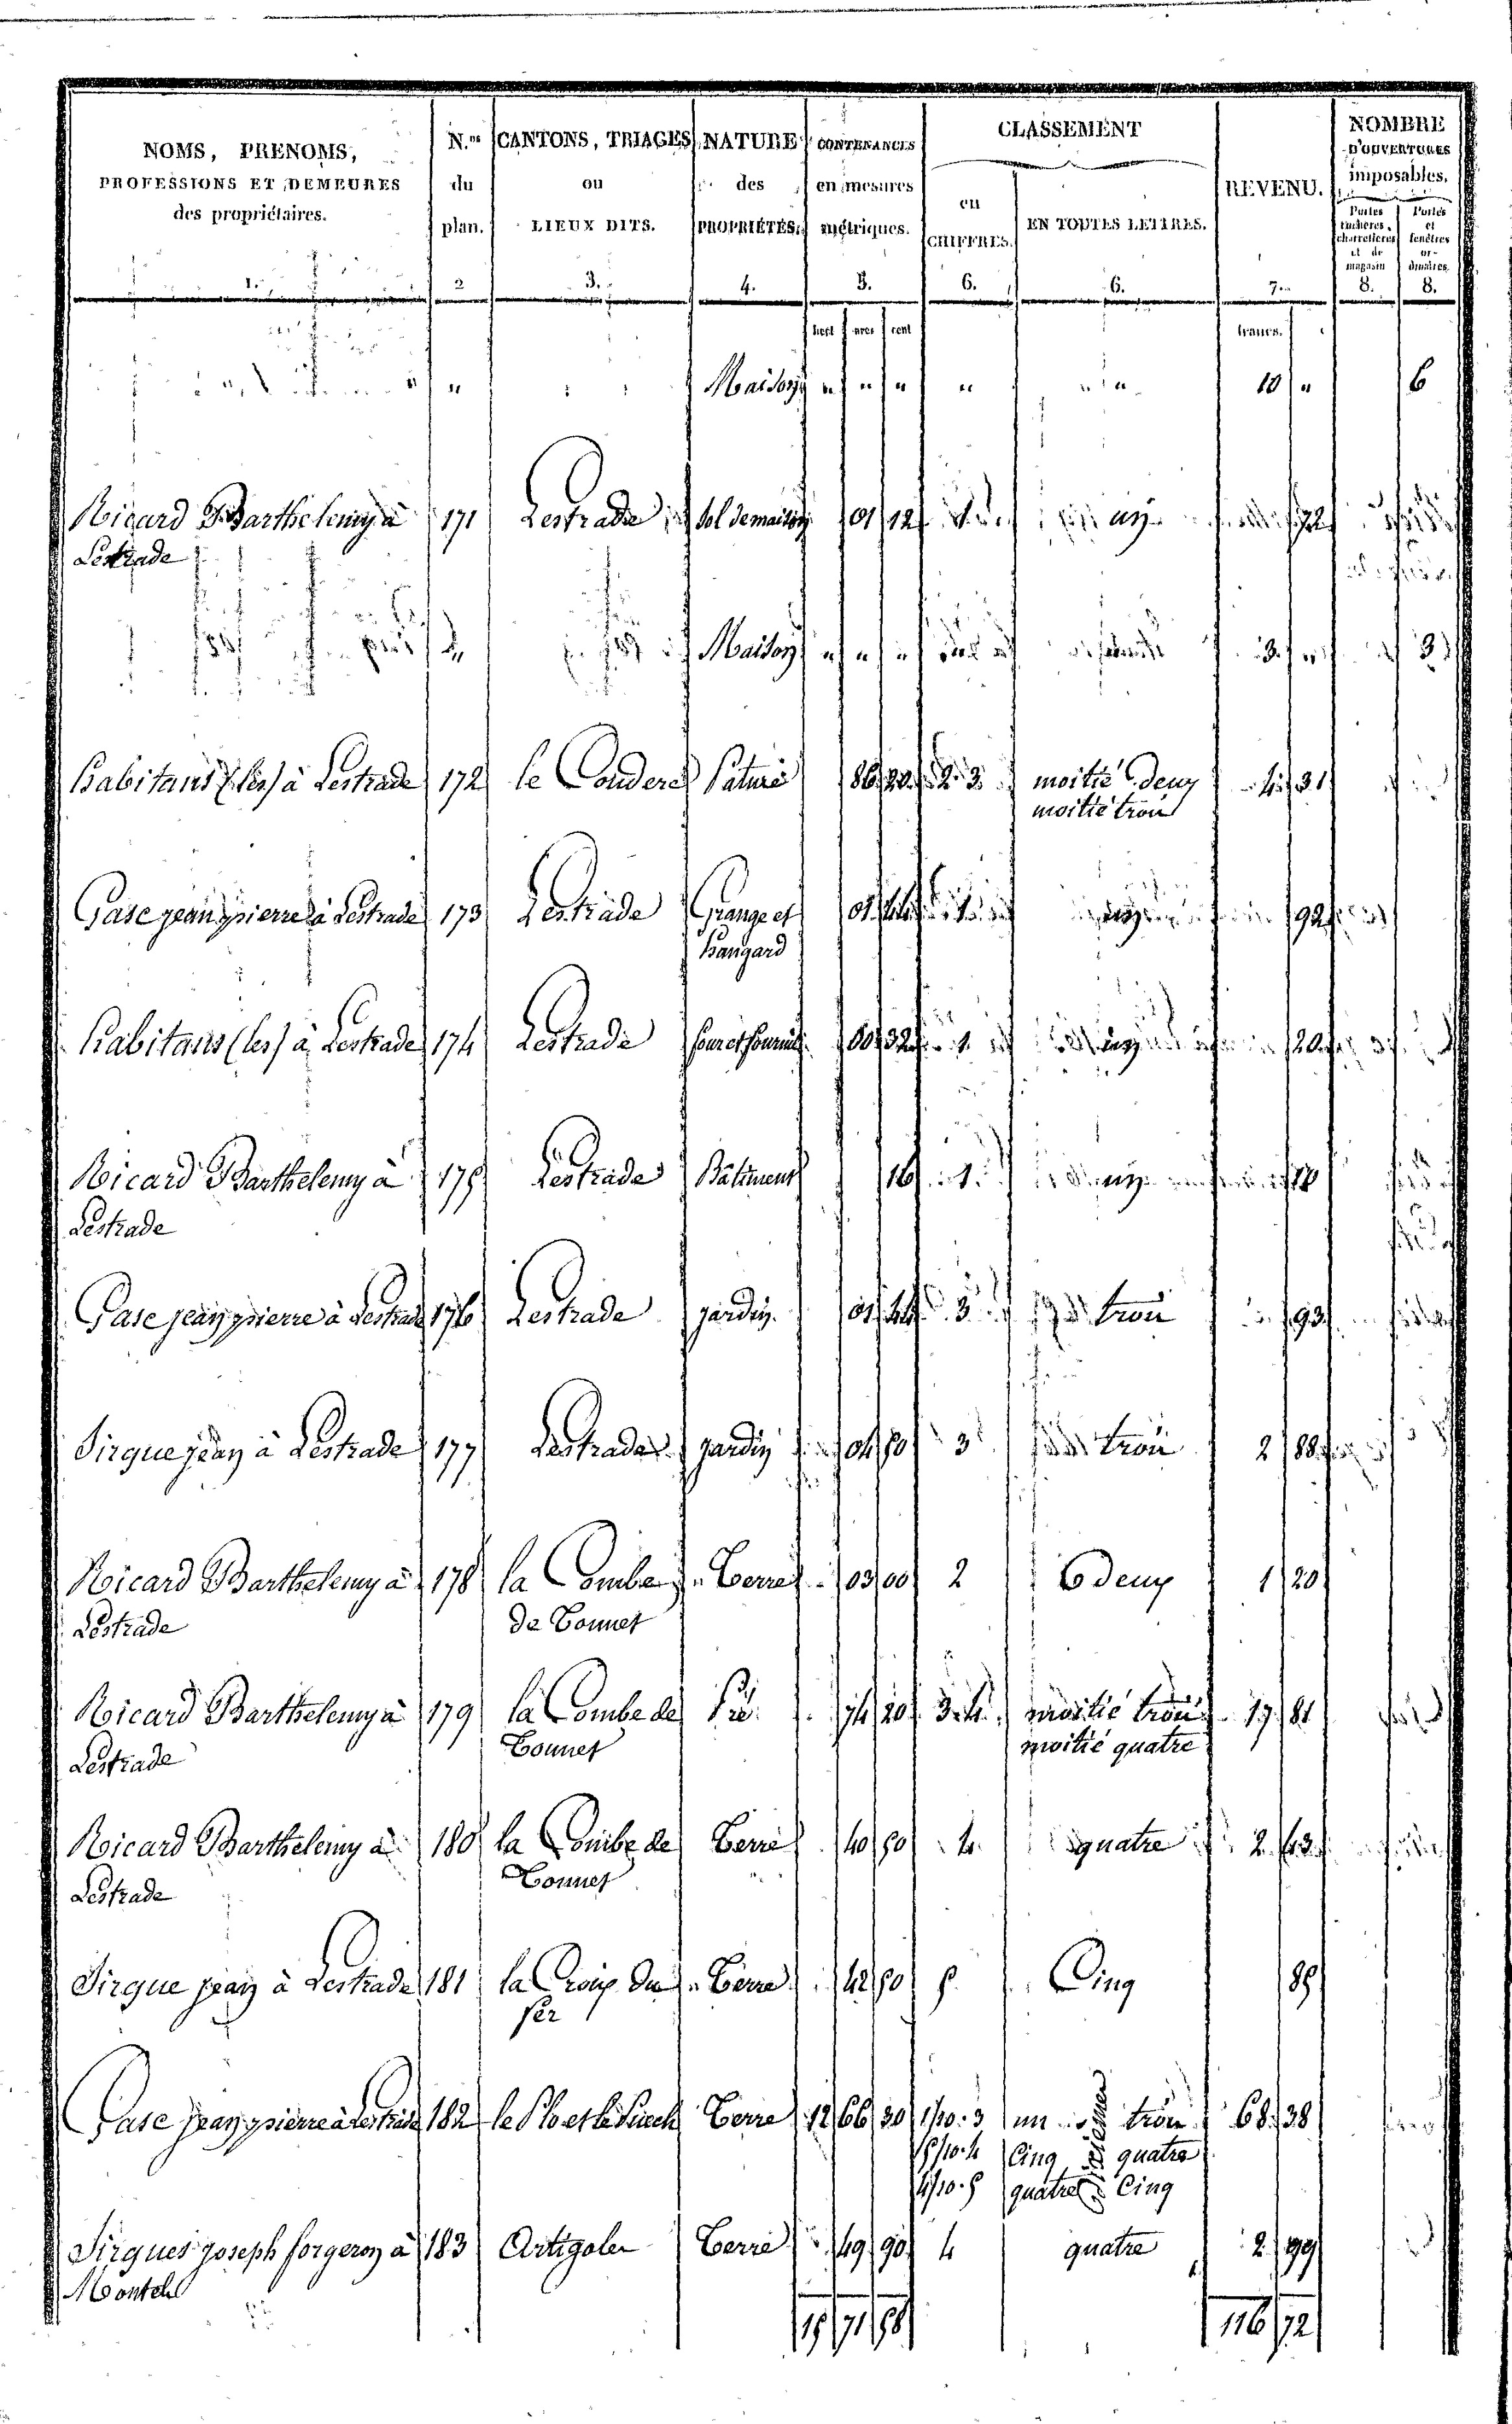 NOMS, PRENOMS, PROFESSIONS ET DEMEURES des propriétaires. N.os du plan. CANTONS, TRIAGES ou LIEUX DITS. NATURE des PROPRIÉTÉS. CONTENANCES en mesures métriques. CLASSEMENT en CHIFFRES. EN TOUTES LETTRES. REVENU. NOMBRE D'OUVERTURES imposables. Portes cochères, charretières et de magasin Portes et fenêtres ordinaires.
1. 2 3. 4. 5. 6. 6. 7. 8. 8.
hect ares cent francs. c
" Maison " " " " " 10 " 6
Ricard Barthelemy à 171 Lestrade Sol de maison 01 12 1 un 72
Lestrade
Maison " " " 3 " 3
habitans (les) à Lestrade 172 le Couderc Pature 86 20 2. 3 moitié deux 4 31
moitié trois
Gase jean pierre à Lestrade 173 Lestrade Grange et 01 44 1 un 92
hangard
habitans (les) à Lestrade 174 Lestrade four et fournil 00 32 1 un 20
Ricard Barthelemy à 175 Lestrade Bâtiment 16 1 un 10
Lestrade
Gase jean pierre à Lestrade 176 Lestrade jardin 01 44 3 trois 93
Sirgue jean à Lestrade 177 Lestrade jardin 04 50 3 trois 2 88
Ricard Barthelemy à 178 la Combe Terre 03 00 2 deux 1 20
Lestrade de Tonnet
Ricard Barthelemy à 179 la Combe de Pré 74 20 3. 4. moitié trois 17 81
Lestrade Tonnet moitié quatre
Ricard Barthelemy à 180 la Combe de Terre 40 50 4. quatre 2 43
Lestrade Tonnet
Sirgue jean à Lestrade 181 la Croix du Terre 42 50 5. Cinq 85
fer
Gase jean pierre à Lestrade 182 le Terre 12 66 30 1/10. 3 un trois 68 38
5/10. 4 Cinq dixiemes quatre
4/10. 5 quatre Cinq
Sirgues joseph forgeron à 183 Artigoles Terre 49 90 4 quatre 2 99
Montels
15 71 58 116 72